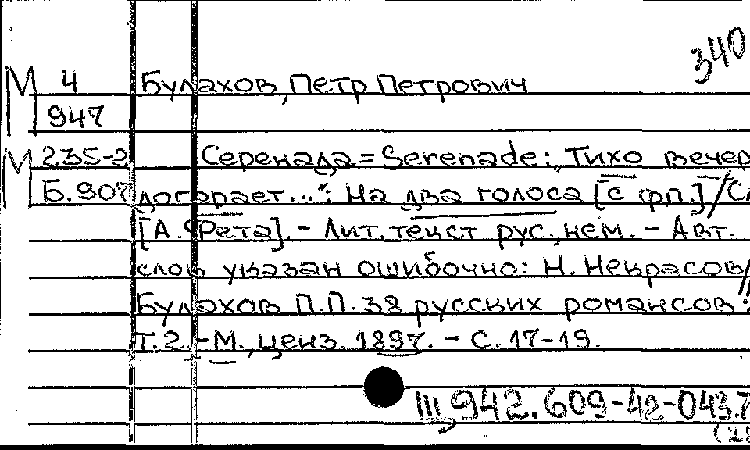 340
М 4 Булахов, Петр Петрович
947
М 235-2 Серенада = Serenade: „Тихо вечер
Б.907 догорает...": На два голоса [с фп.]/Сл
[А. Фета]. - Лит. текст рус., нем. - Авт.
слов указан ошибочно: Н. Некрасов//
Булахов П.П. 38 русских романсов:
Т.2. - М., ценз. 1897. - С. 17-19.
942.609-42-043.7